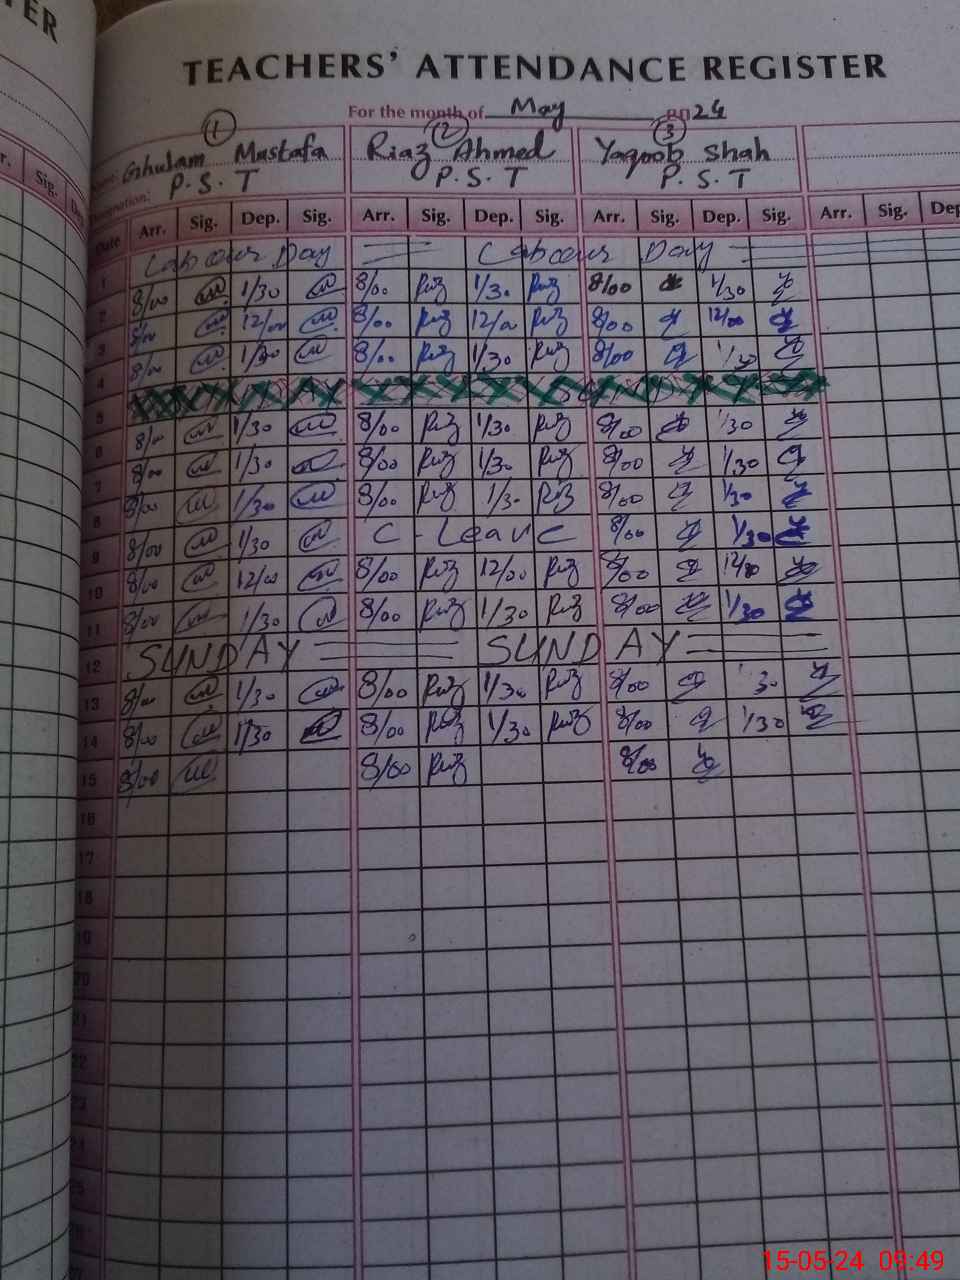 TER
TEACHERS' ATTENDANCE REGISTER
For the month of May 2024
1 2 3
Ghulam Mustafa Riaz Ahmed Yaqoob Shah
P.S.T P.S.T P.S.T
r. Sig. Date Arr. Sig. Dep. Sig. Arr. Sig. Dep. Sig. Arr. Sig. Dep. Sig. Arr. Sig. Dep
1 Labour Day Labour Day
2 8/00 1/30 8/00 Riz 1/30 Riz 8/00 1/30
3 8/00 12/00 8/00 Riz 12/00 Riz 8/00 12/00
4 8/00 1/30 8/00 Riz 1/30 Riz 8/00 1/30
5
6 8/00 1/30 8/00 Riz 1/30 Riz 8/00 1/30
7 8/00 1/30 8/00 Riz 1/30 Riz 8/00 1/30
8 8/00 1/30 8/00 Riz 1/30 Riz 8/00 1/30
9 8/00 1/30 C-Leave 8/00 1/30
10 8/00 12/00 8/00 Riz 12/00 Riz 8/00 12/00
11 8/00 1/30 8/00 Riz 1/30 Riz 8/00 1/30
12 SUNDAY SUNDAY
13 8/00 1/30 8/00 Riz 1/30 Riz 8/00 1/30
14 8/00 1/30 8/00 Riz 1/30 Riz 8/00 1/30
15 8/00 8/00 Riz 8/00
16
17
18
19
20
21
22
23
24
25
15-05-24 09:49